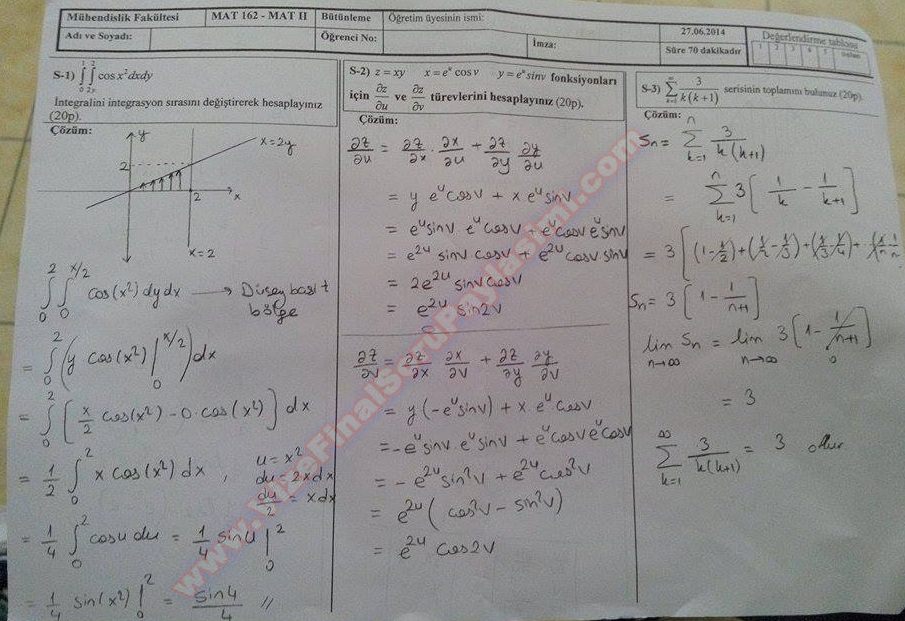 Mühendislik Fakültesi
MAT 162 - MAT II
Bütünleme
Öğretim üyesinin ismi:
27.06.2014
Değerlendirme tablosu
1 2 3 4 5 Toplam
Adı ve Soyadı:
Öğrenci No:
İmza:
Süre 70 dakikadır
S-1) ∫₀¹∫₂ᵧ² cos x² dxdy
İntegralini integrasyon sırasını değiştirerek hesaplayınız
(20p).
Çözüm:
y
x=2y
2
2
x
x=2
∫₀²∫₀^(x/2) cos(x²) dy dx → Düşey basit
bölge
= ∫₀² (y cos(x²) |₀^(x/2)) dx
= ∫₀² [x/2 cos(x²) - 0·cos(x²)] dx
= 1/2 ∫₀² x cos(x²) dx , u = x²
du = 2x dx
du/2 = x dx
= 1/4 ∫₀² cosu du = 1/4 sinu |₀²
= 1/4 sin(x²) |₀² = sin4/4 //
S-2) z = xy x = eᵘ cos v y = eᵘ sin v fonksiyonları
için ∂z/∂u ve ∂z/∂v türevlerini hesaplayınız (20p).
Çözüm:
∂z/∂u = ∂z/∂x · ∂x/∂u + ∂z/∂y ∂y/∂u
= y eᵘ cosv + x eᵘ sinv
= eᵘ sinv eᵘ cosv + eᵘ cosv eᵘ sinv
= e²ᵘ sinv cosv + e²ᵘ cosv sinv
= 2e²ᵘ sinv cosv
= e²ᵘ sin2v
∂z/∂v = ∂z/∂x ∂x/∂v + ∂z/∂y ∂y/∂v
= y(-eᵘ sinv) + x·eᵘ cosv
= -eᵘ sinv·eᵘ sinv + eᵘ cosv eᵘ cosv
= -e²ᵘ sin²v + e²ᵘ cos²v
= e²ᵘ (cos²v - sin²v)
= e²ᵘ cos2v
S-3) ∑ₖ₌₁^∞ 3/k(k+1) serisinin toplamını bulunuz (20p).
Çözüm:
Sn = ∑ₖ₌₁ⁿ 3/k(k+1)
= ∑ₖ₌₁ⁿ 3[1/k - 1/(k+1)]
= 3[(1-1/2)+(1/2-1/3)+(1/3-1/4)+
Sn = 3[1 - 1/(n+1)]
lim n→∞ Sn = lim n→∞ 3[1 - 1/(n+1)]
0
= 3
∑ₖ₌₁^∞ 3/k(k+1) = 3 olur
www.VizeFinalSoruPaylasimi.com